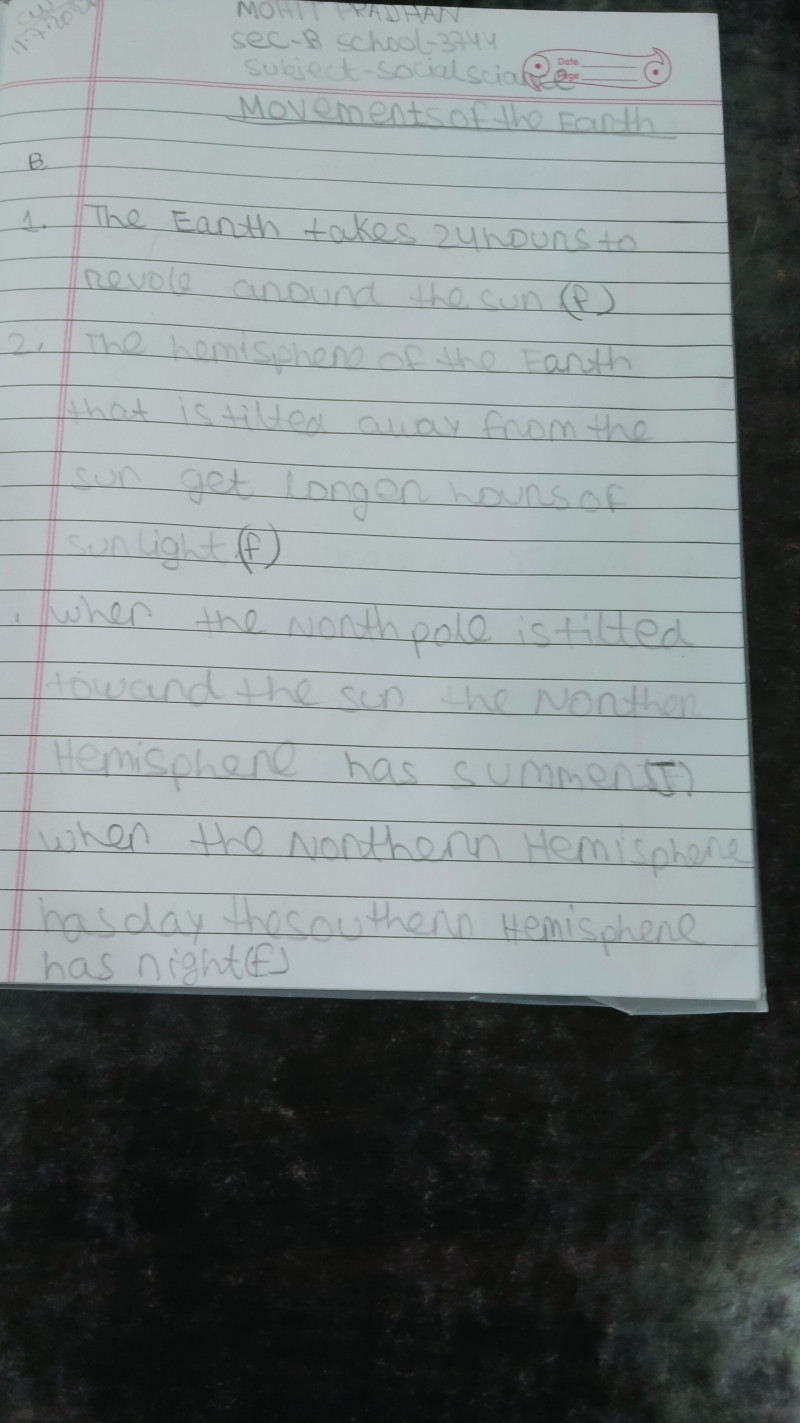 CW
11-7-202
MOHIT PRADHAN
sec-B school-3744
Subject-socialsciance
Date
Page
Movements of the Earth
B
1. The Earth takes 24hours to
revole around the sun (F)
2. The hemisphere of the Earth
that is tilted away from the
sun get longer hours of
sunlight (f)
when the North pole is tilted
toward the sun the Northen
Hemisphere has summer (T)
when the Northern Hemisphere
has day the southern Hemisphere
has night (F)